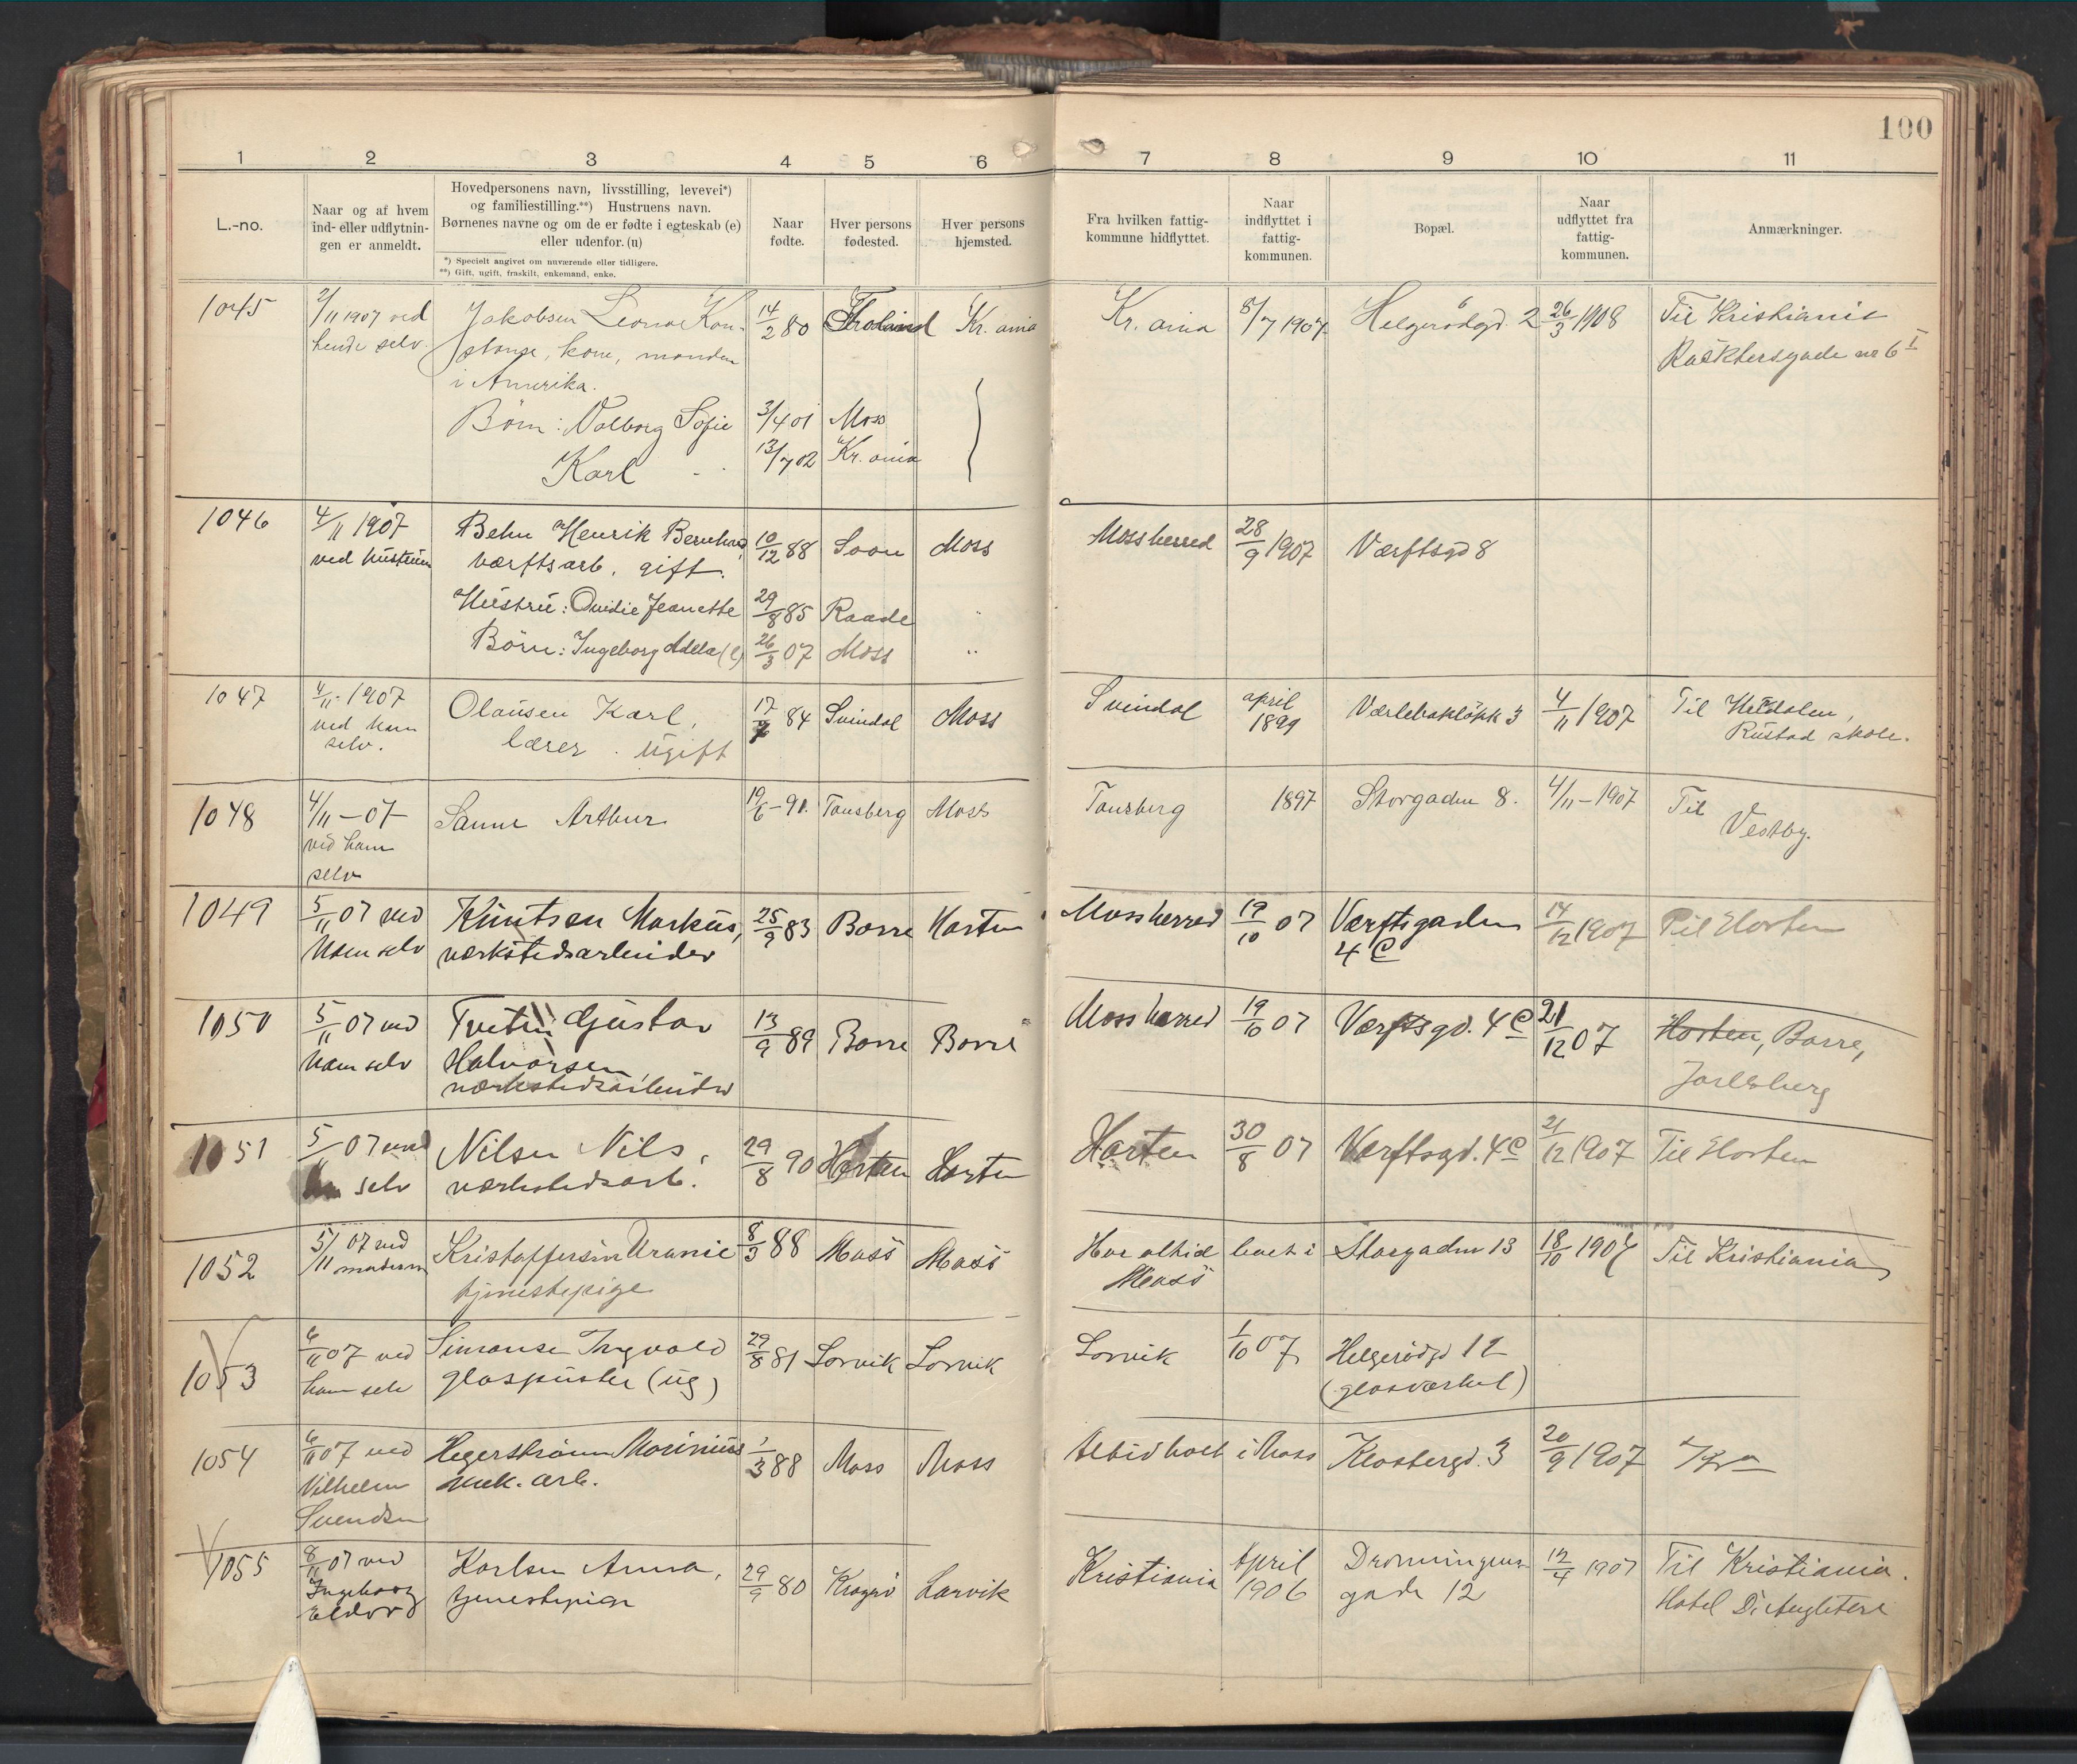 100
1 2 3 4 5 6 7 8 9 10 11
L.-no.
Naar og af hvem
ind- eller udflytnin-
gen er anmeldt.
Hovedpersonens navn, livsstilling, levevei*)
og familiestilling.**) Hustruens navn.
Børnenes navne og om de er fødte i egteskab (e)
eller udenfor. (u)
*) Specielt angivet om nuværende eller tidligere.
**) Gift, ugift, fraskilt, enkemand, enke.
Naar
fødte.
Hver persons
fødested.
Hver persons
hjemsted.
Fra hvilken fattig-
kommune hidflyttet.
Naar
indflyttet i
fattig-
kommunen.
Bopæl.
Naar
udflyttet fra
fattig-
kommunen.
Anmærkninger.
1045 2/11 1907 ved Jakobsen Leona Kon- 14/2 80 Froland Kr.ania Kr.ania 8/7 1907 Helgerødgd. 2 26/3 1908 Til Kristiania
hende selv. stanse, kone, manden nr 6 I
i Amerika.
Børn: Valborg Sofie 3/4 01 Moss
Karl 13/7 02 Kr.ania
1046 4/11 1907 Behn Henrik Bernhard 10/12 88 Soon Moss Moss herred 28/9 1907 Værftsgd 8
ved hustruen værftsarb, gift.
Hustru: Ovidie Jeanette 29/8 85 Raade "
Børn: Ingeborg Adela (e) 26/3 07 Moss "
1047 4/11 1907 Olausen Karl, 17/7 84 Svindal Moss Svindal april 1899 Værlebakløkk 3 4/11 1907 Til
ved ham lærer. ugift Rustad skole.
selv.
1048 4/11-07 Sanne Arthur 19/6-91. Tønsberg Moss Tønsberg 1897 Storgaden 8. 4/11-1907 Til
ved ham Vestby.
selv
1049 5/11 07 ved Knutsen Markus, 25/9 83 Borre Horten Moss herred 19/10 07 Værftsgaden 14/12 1907 Til Horten
ham selv værkstedsarbeider 4 C
1050 5/11 07 ved Tveten Gustav 13/9 89 Borre Borre Moss herred 19/10 07 Værftsgd. 4 C 21/12 07 Horten, Borre,
ham selv Halvorsen, Jarlsberg
værkstedsarbeider
1051 5/11 07 ved Nilsen Nils, 29/8 90 Horten Horten Horten 30/8 07 Værftsgd. 4 C 21/12 1907 Til Horten
ham selv værkstedsarb.
1052 5/11 07 ved Kristoffersen Uranie 8/3 88 Moss Moss Har altid boet i Storgaden 13 18/10 1907 Til Kristiania
moderen tjenestepige Moss
1053 6/11 07 ved Simonsen Ingvald 29/8 81 Larvik Larvik Larvik 1/10 07 Helgerødgd 12
ham selv glaspuster (ug) (glasværket)
1054 6/11 07 ved Hegerstrøm Marinius 1/3 88 Moss Moss Altid boet i Moss Klostergd. 3 20/9 1907
Vilhelm mek. arb.
Svendsen
1055 8/11 07 ved Karlsen Anna, 29/9 80 Kragerø Larvik Kristiania April 1906 Dronningens- 12/4 1907 Til Kristiania.
Ingeborg tjenestepige gade 12 Hotel D'Angleterre